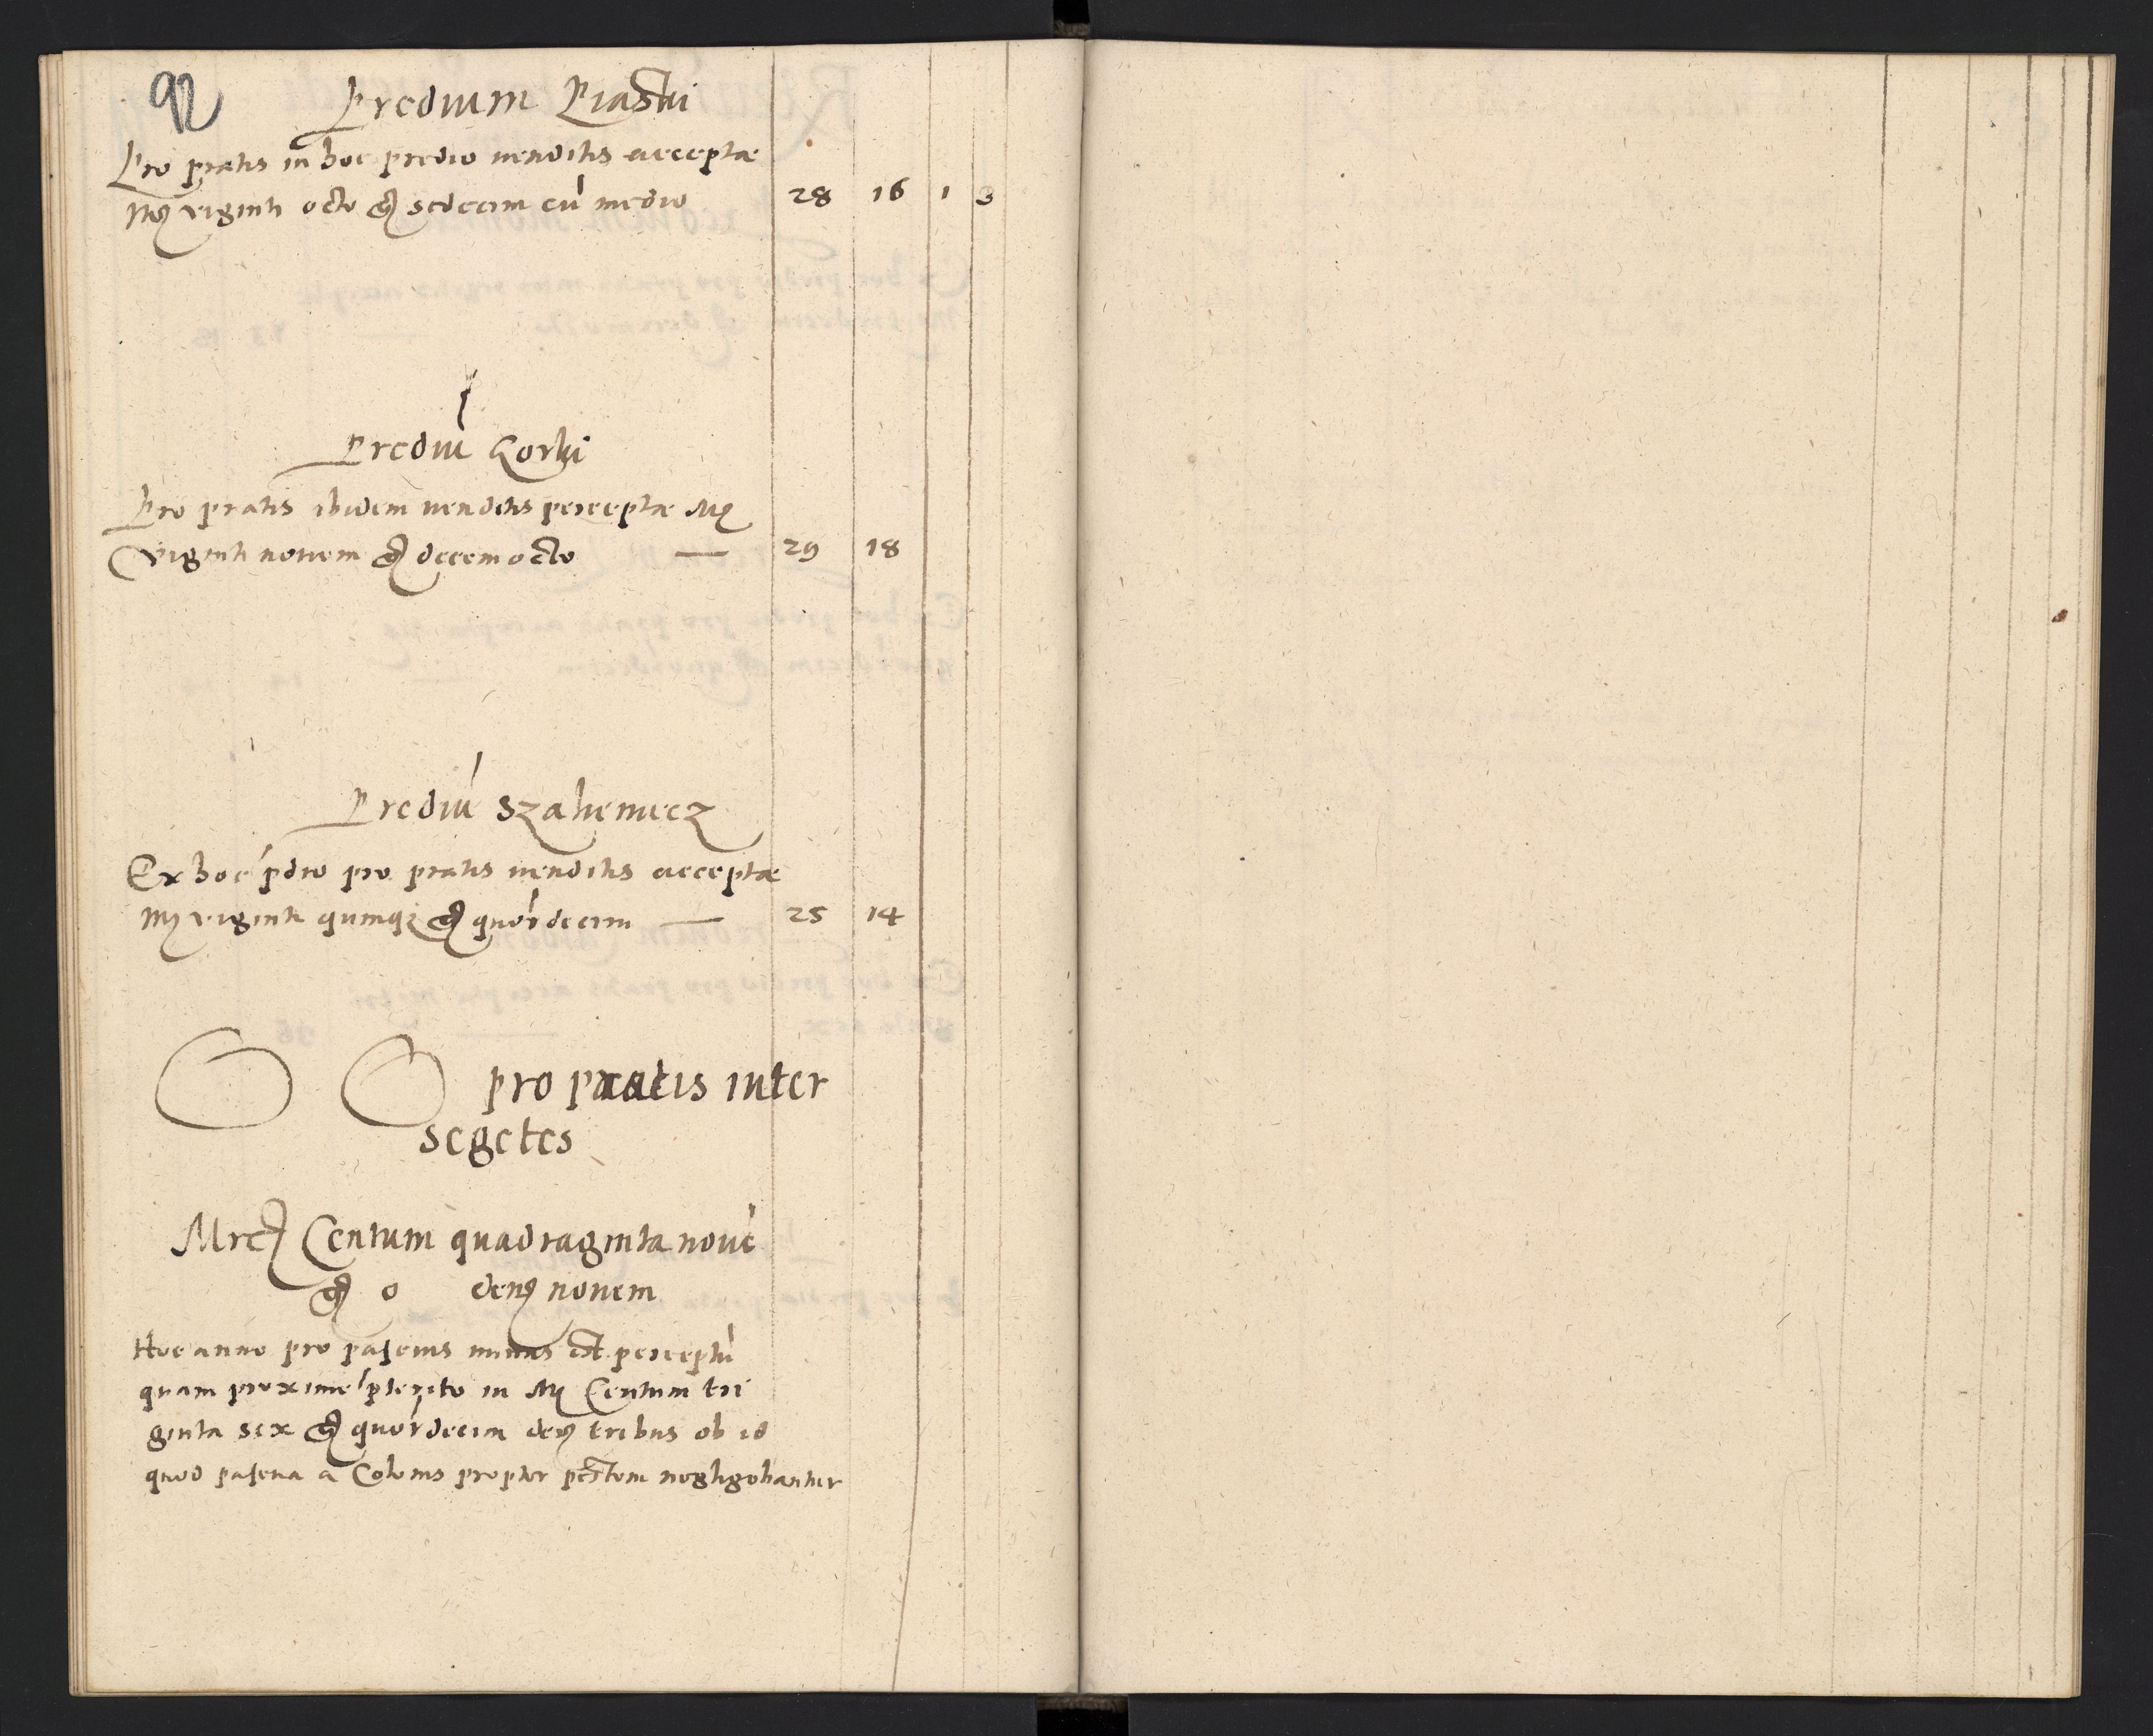 92
Predium Piaski
Pro pratis in hoc predio venditis acceptae
Mrc viginti octo gr sedecim cū medio 28 16 1 3
Prediū Gorki
Pro pratis ibidem venditis perceptae Mrc
Viginti novem gr decem octo — 29 18
Prediū Szahieniecz
Ex hoc pdio pro pratis venditis acceptae
Mrc viginti quinqz gr quordecim — 25 14
O O pro pratis inter
segetes
Mrc Centum quadraginta nouē
gr 0 den novem
Hoc anno pro pascuis minus est perceptū
quam proxime pterito in Mrc Centum tri
ginta sex gr quordecim den tribus ob id
quod pascua a Colonis propter pestem negligebantur